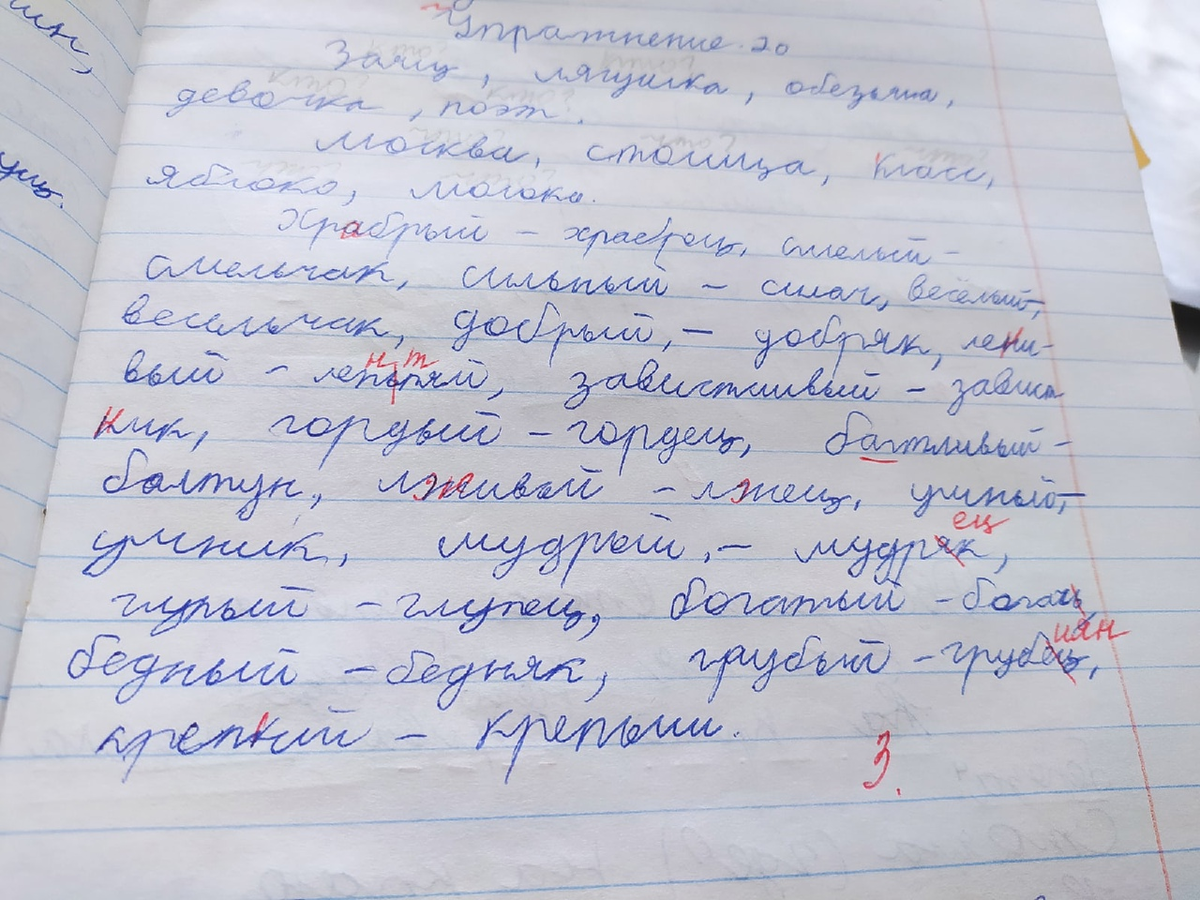 Упражнение 20
Заяц, лягушка, обезьяна,
девочка, поэт.
Москва, столица, класс,
яблоко, молоко.
Храбрый – храбрец, смелый –
смельчак, сильный – силач, весёлый,–
весельчак, добрый, – добряк, лени-
нт
вый – лентяй, завистливый – завист
ник, гордый – гордец, балтливый –
болтун, лживый – лжец, умный,–
ец
умник, мудрый, – мудряк,
глупый – глупец, богатый – богачь,
иян
бедный – бедняк, грубый – грубец,
крепкий – крепыш.
3.